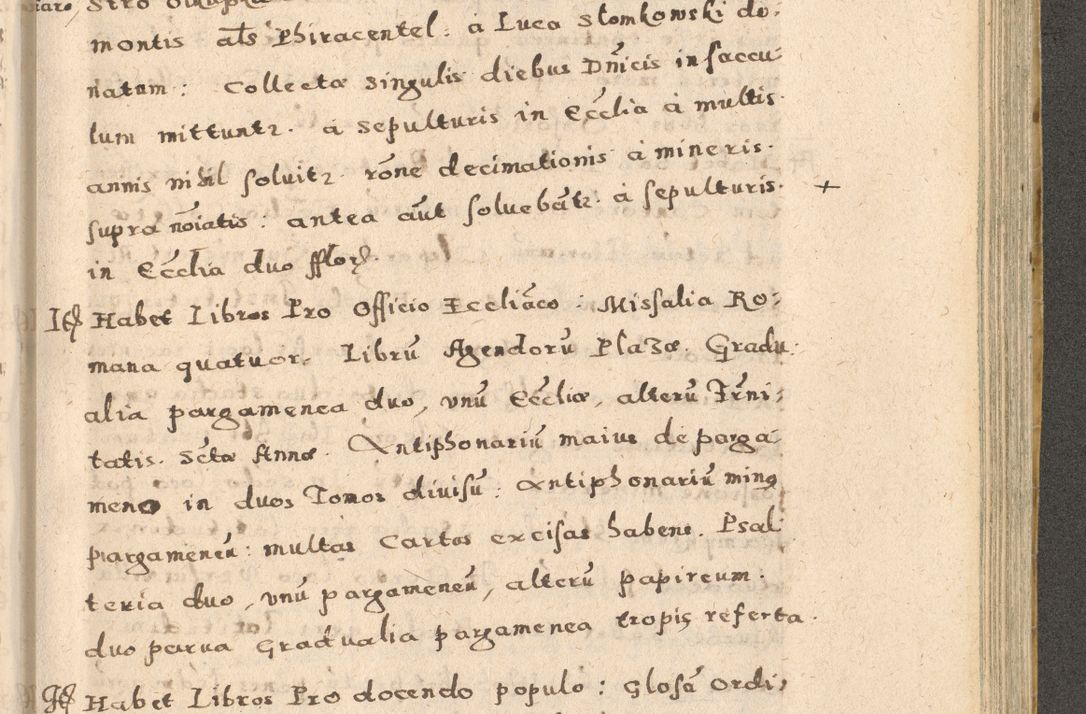 montis als Phiracentel: à Luca Slomkowski do:
natum: Collectæ singulis diebus Dnicis in saccu
lum mittuntr. à sepulturis in Ecclia à multis
annis nihil soluitr rone decimationis à mineris.
supra noiatis: antea aut soluebatr à sepulturis. +
in Ecclia duo fflor.
It Habet Libros Pro Officio Eccliaco: Missalia Ro:
mana quatuor. Librū Agendorū Plazæ. Gradu:
alia pargamenea duo, vnū Eccliæ, alterū Trni:
tatis. Sctæ Annæ. Antiphonariū maius de parga
meno in duos Tomos diuisū: Antiphonariū ming
pargameneū: multas cartas excisas habens. Psal
teria duo, vnū pargameneū, alterū papireum.
duo parua Gradualia pargamenea tropis referta.
It Habet Libros Pro docendo populo: Glosā Ordi: